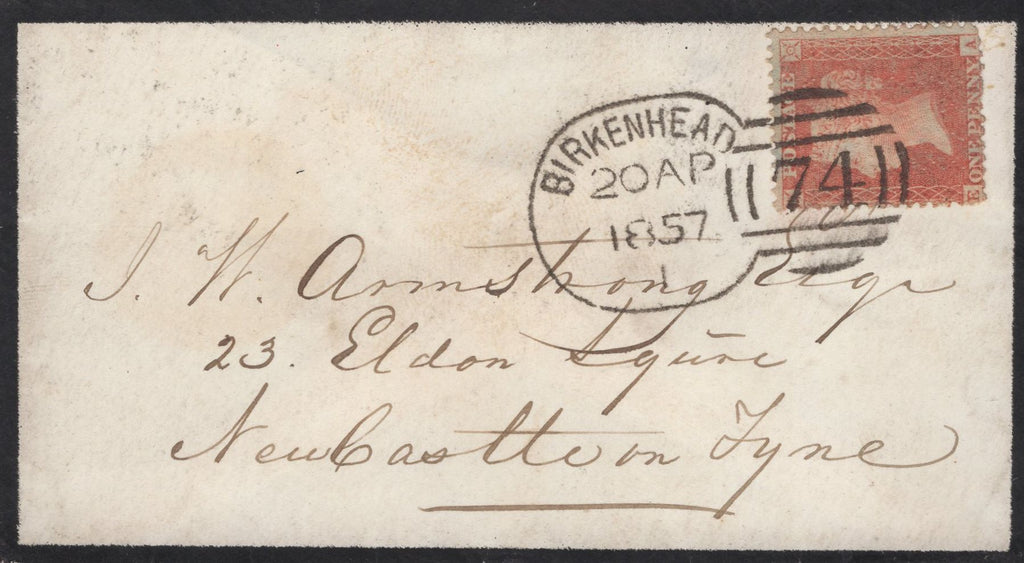 POSTAGE
ONE PENNY
E A
BIRKENHEAD
20 AP
1857
1
74
J. W. Armstrong Esqr
23. Eldon Squire
NewCastle on Tyne